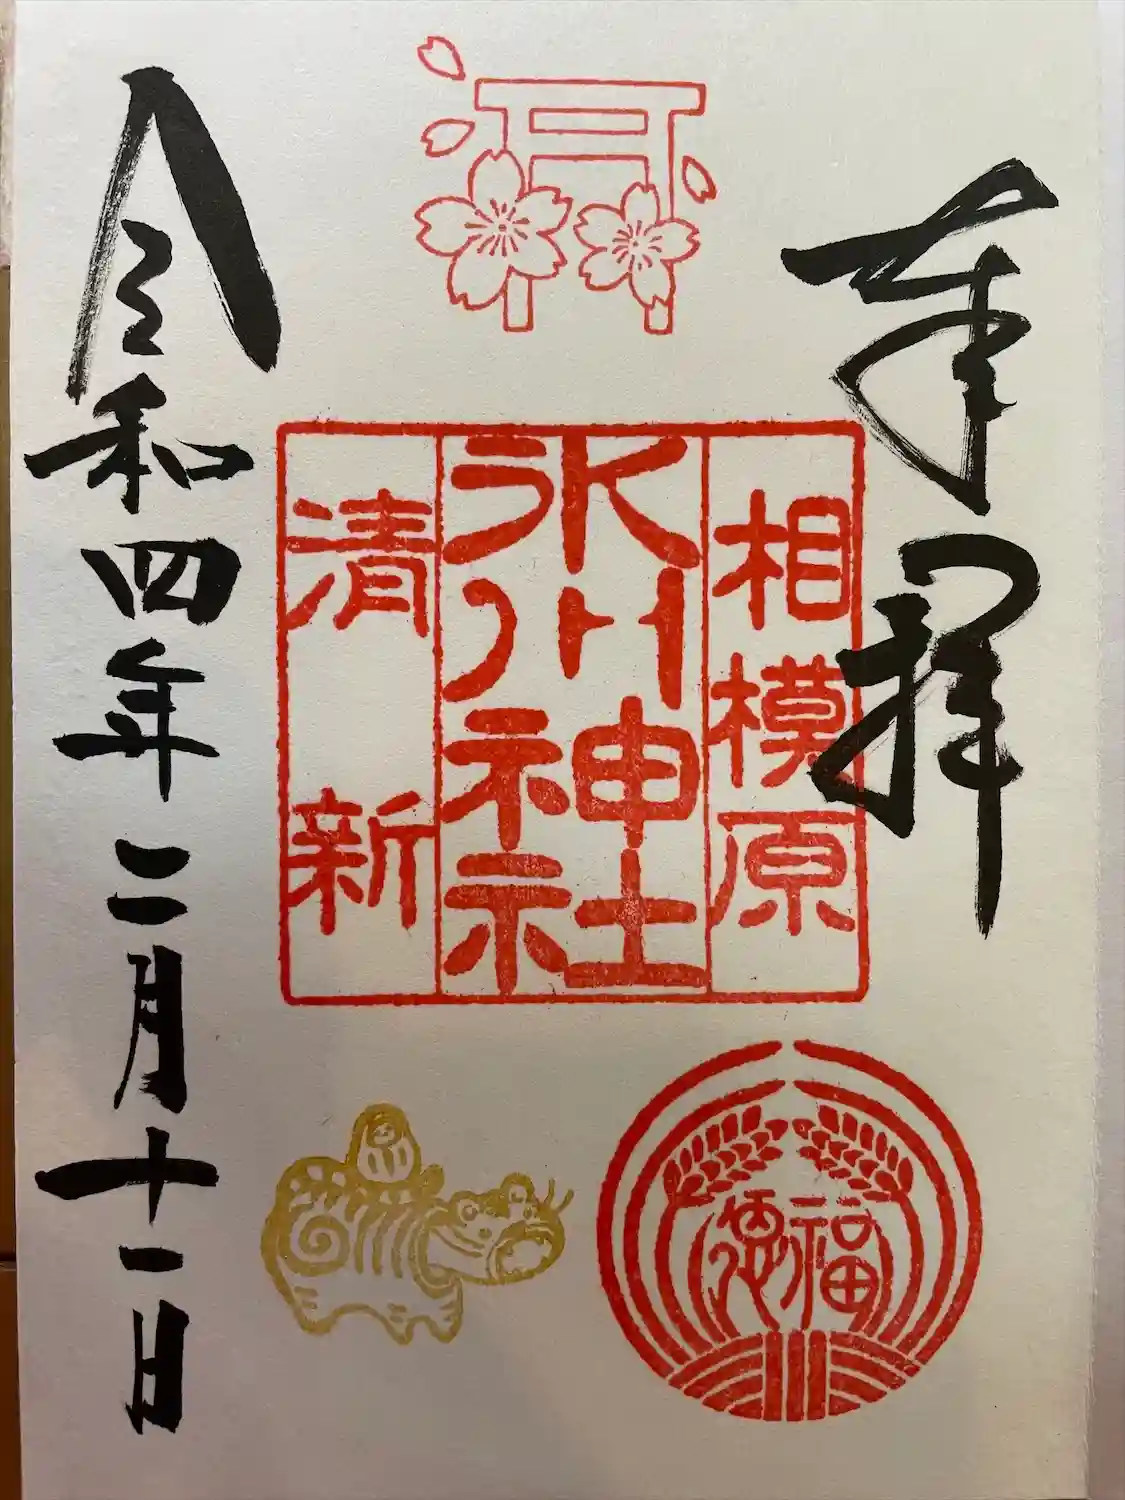 奉拝
相模原
氷川神社
清新
令和四年二月十一日
福